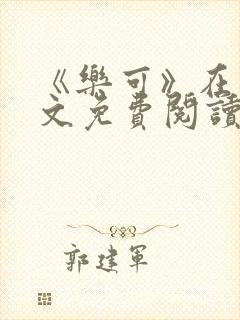 《樂可》在
文免費閱讀
郭建軍